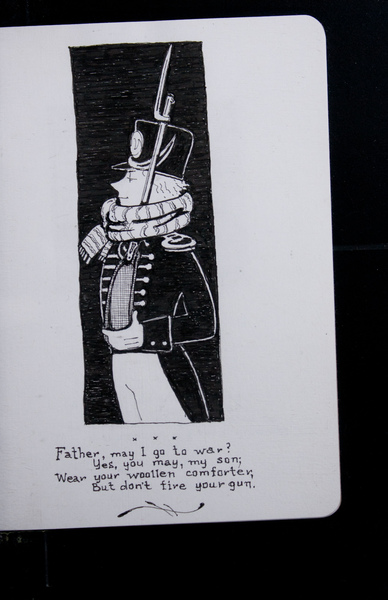 * * *
Father, may I go to war?
Yes, you may, my son;
Wear your woollen comforter,
But don't fire your gun.